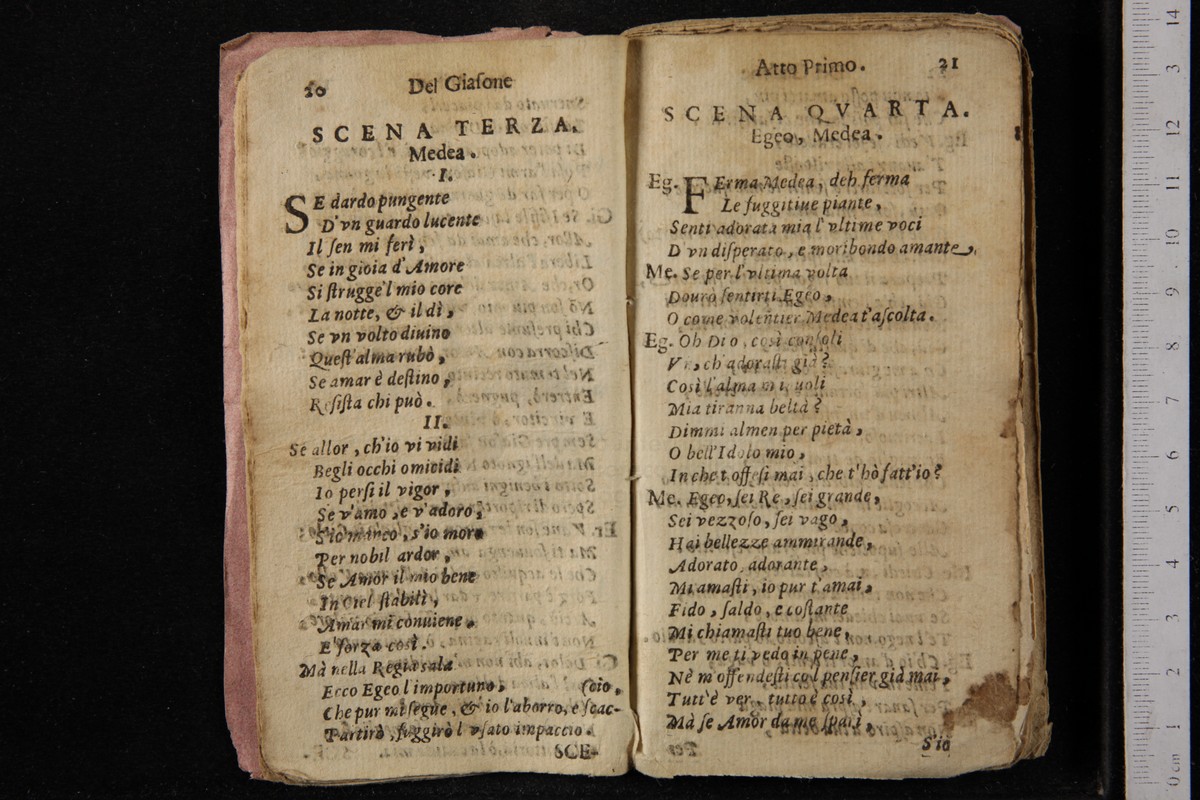 20 Del Giaſone
SCENA TERZA.
Medea.
I.
SE dardo pungente
D'vn guardo lucente
Il ſen mi ferì,
Se in gioia d'Amore
Si ſtrugge'l mio core
La notte, & il dì,
Se vn volto diuino
Queſt'alma rubò,
Se amar è deſtino,
Reſiſta chi può.
II.
Se allor, ch'io vi vidi
Begli occhi omicidi
Io perſi il vigor,
Se v'amo, e v'adoro,
S'io manco, s'io moro
Per nobil ardor,
Se Amor il mio bene
In Ciel ſtabilì,
Amar mi conuiene,
E' forza così.
Mà nella Regia sala
Ecco Egeo l'importuno, (cio,
Che pur mi ſegue, & io l'aborro, e ſcac-
Partirò, fuggirò l'vſato impaccio.
SCE-
Atto Primo. 21
SCENA QVARTA.
Egeo, Medea.
Eg. FErma Medea, deh ferma
Le fuggitiue piante,
Senti adorata mia l'vltime voci
D'vn diſperato, e moribondo amante.
Me. Se per l'vltima volta
Dourò ſentirti Egeo,
O come volentier Medea t'aſcolta.
Eg. Oh Dio, così conſoli
ch'adoraſti già?
Così l'alma m'inuoli
Mia tiranna beltà?
Dimmi almen per pietà,
O bell'Idolo mio,
In che t'offeſi mai, che t'hò fatt'io?
Me. Egeo, ſei Re, ſei grande,
Sei vezzoſo, ſei vago,
Hai bellezze ammirande,
Adorato, adorante,
Mi amaſti, io pur t'amai,
Fido, ſaldo, e coſtante
Mi chiamaſti tuo bene,
Per me ti vedo in pene,
Nè m'offendeſti col penſier già mai,
Tutt'è ver, tutto è così,
Mà ſe Amor da me ſparì,
S'io